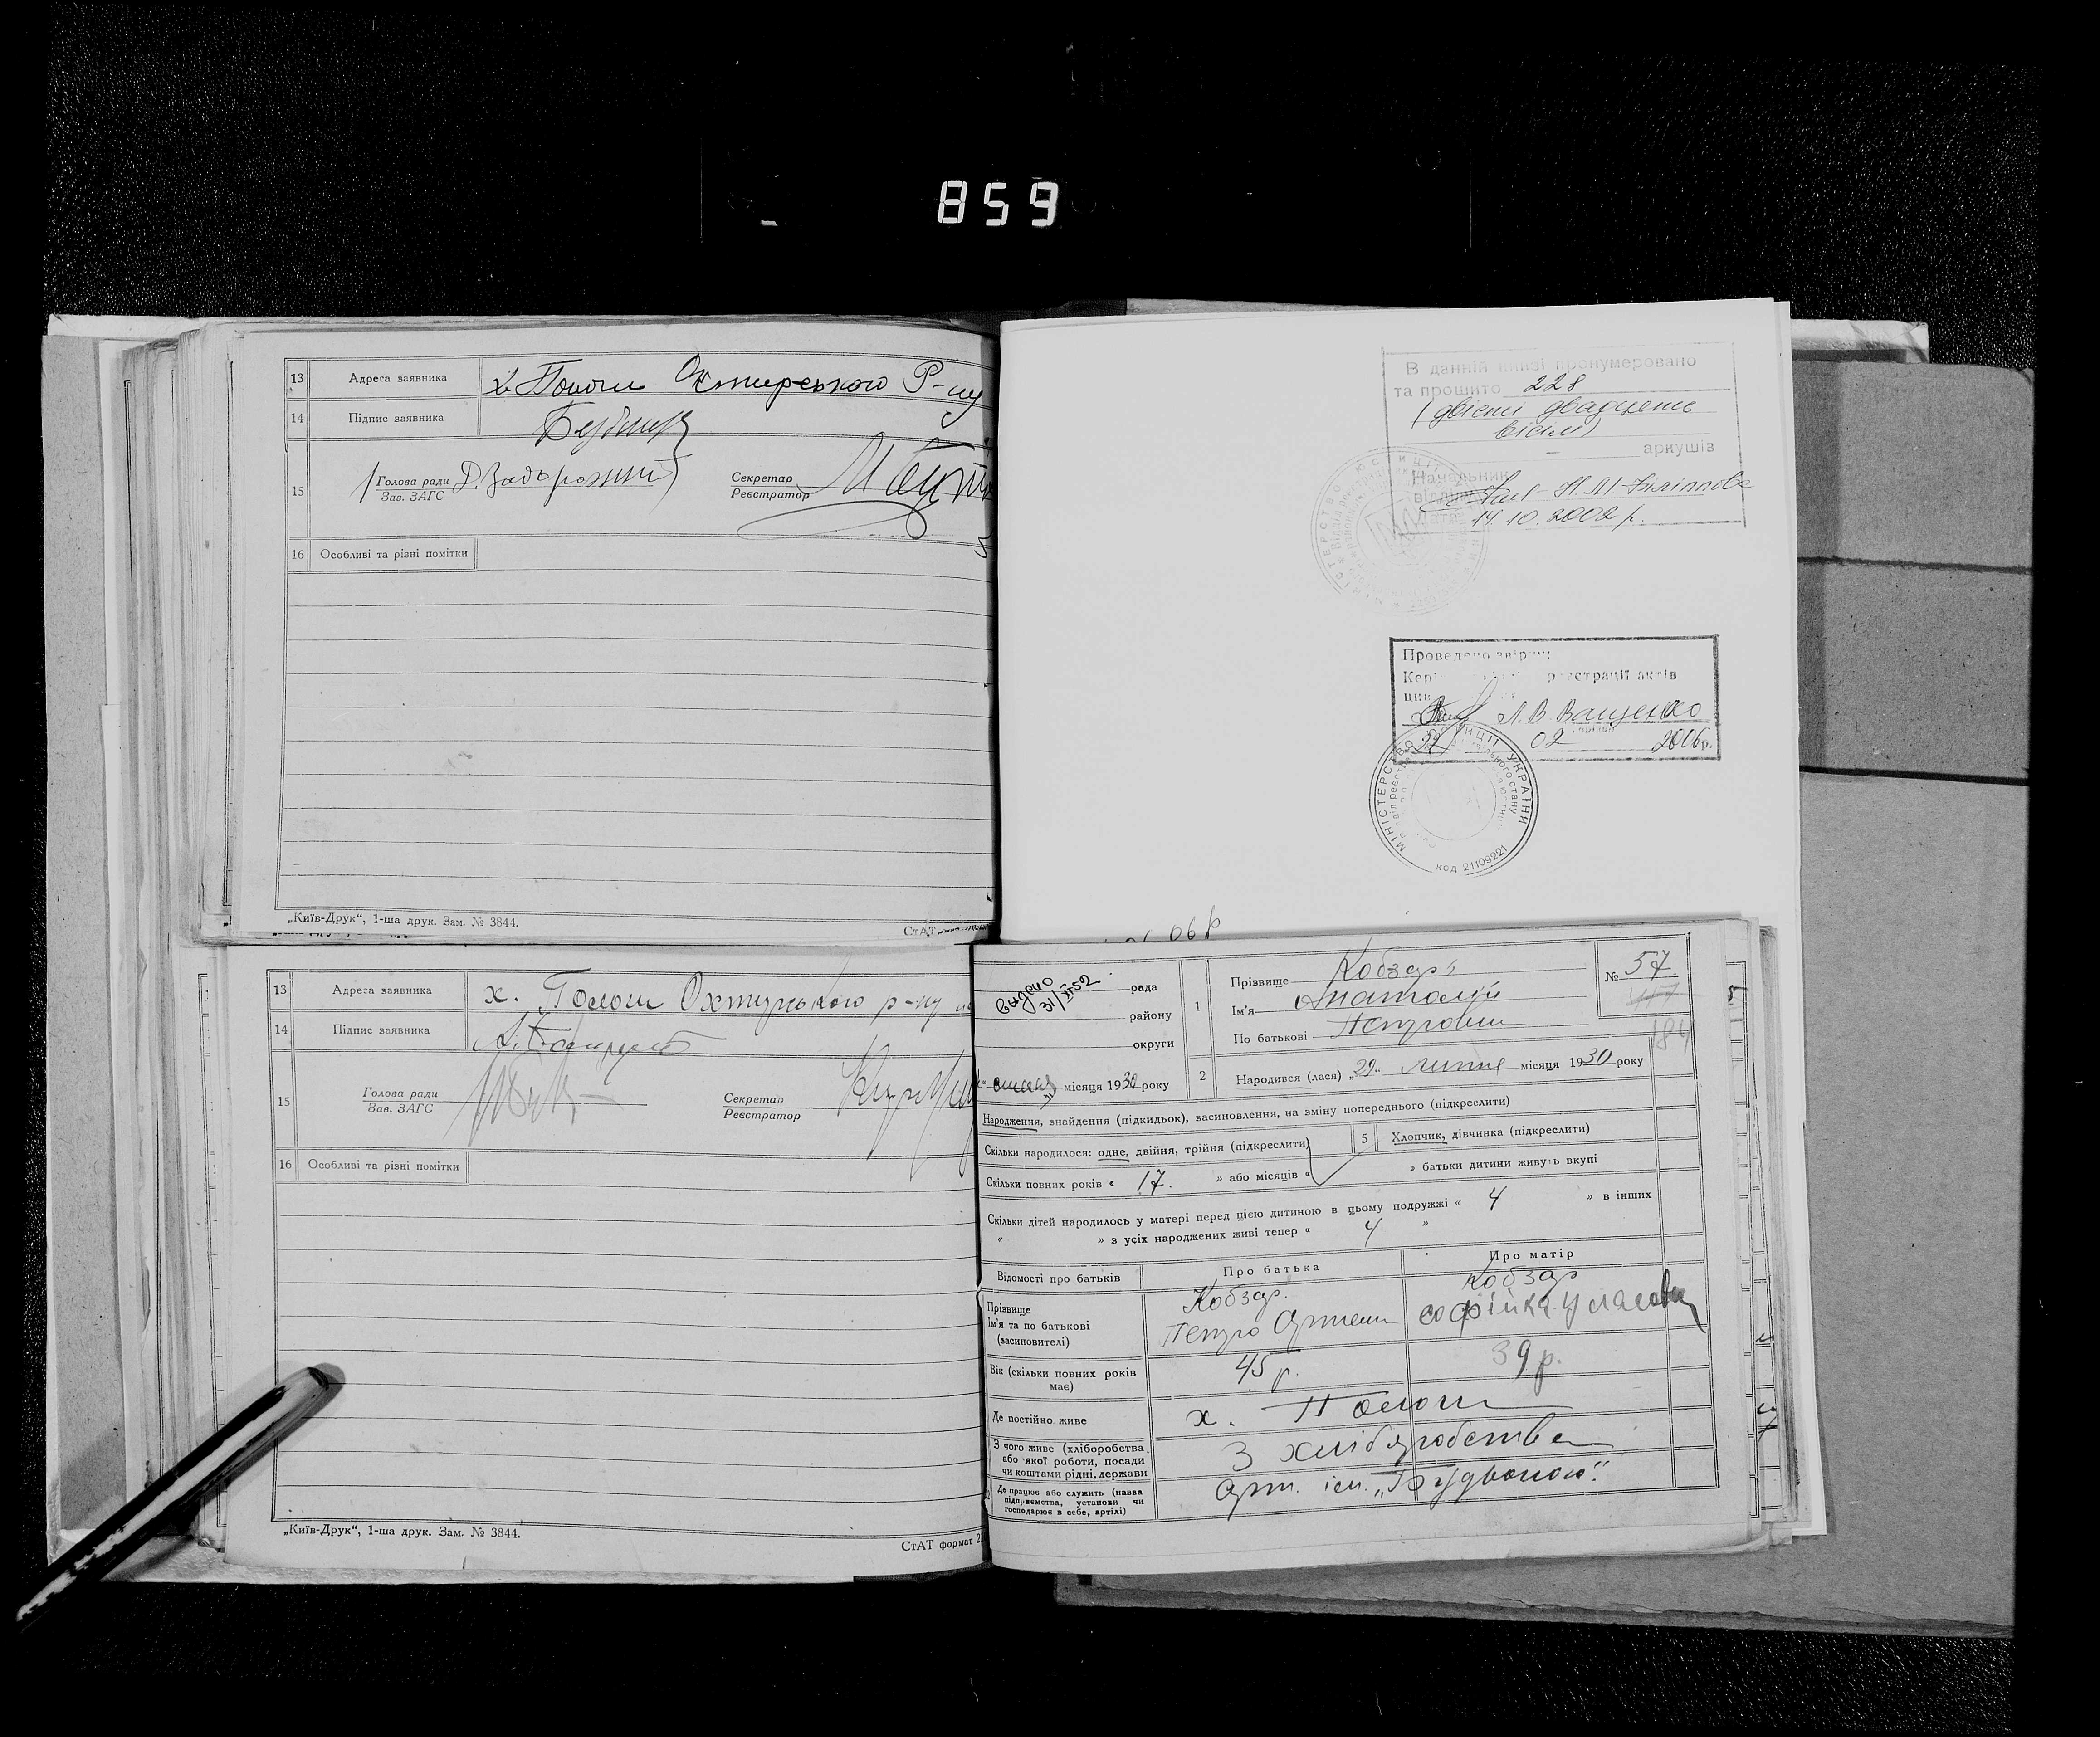 859
13 Адреса заявника х. Пологи Охтирського Р-ну
14 Підпис заявника
15 Голова ради Д. Задорожний Секретар
Зав. ЗАГС Реєстратор
16 Особливі та різні помітки
„Київ-Друк“, 1-ша друк. Зам. № 3844. СтАТ
В данній книзі пронумеровано
та прошито 228
(двісти двадцять
вісім)
аркушів
Начальник
відділу
14.10.2002 р.
Проведено звірку:
реєстрації актів
Л.В. Ващенко
02 2006р.
МІНІСТЕРСТВО ЮСТИЦІЇ УКРАЇНИ
код 21109221
06 р
13 Адреса заявника х. Пологи Охтирського р-ну
14 Підпис заявника
15 Голова ради Секретар
Зав. ЗАГС Реєстратор
16 Особливі та різні помітки
„Київ-Друк“, 1-ша друк. Зам. № 3844.
СтАТ формат
выдано
31/
рада
району
округи
місяця 1930 року
1 Прізвище Кобзар
Ім'я Анатолій
По батькові Петрович
№ 57
184
2 Народився (лася) „29“ липня місяця 1930 року
Народження, знайдення (підкидьок), засиновлення, на зміну попереднього (підкреслити)
Скільки народилося: одне, двійня, трійня (підкреслити) 5 Хлопчик, дівчинка (підкреслити)
Скільки повних років « 17. » або місяців « » батьки дитини живуть вкупі
Скільки дітей народилось у матері перед цією дитиною в цьому подружжі « 4 » в інших
« » з усіх народжених живі тепер « 4 »
Відомості про батьків Про батька Про матір
Прізвище Кобзар. Кобзар
Ім'я та по батькові Петро Артем
(засиновителі)
Вік (скільки повних років 45 р. 39 р.
має)
Де постійно живе х. Пологи
З чого живе (хліборобства З хліборобства
або якої роботи, посади
чи коштами рідні, держави
Де працює або служить (назва Арт. ім. „Будьоного“.
підприємства, установи чи
господарює в себе, артілі)